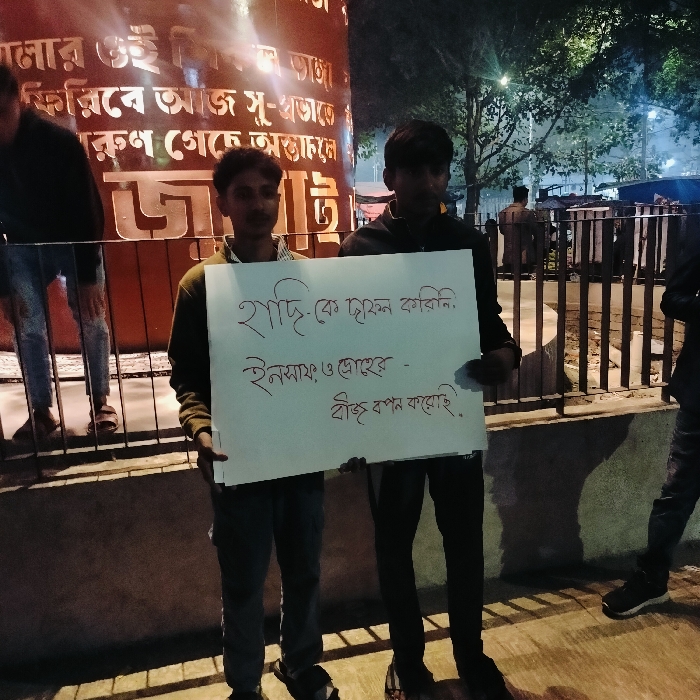 লার ওই
ভাঙ্গা
ফিরিবে আজ সু-প্রভাতে
রুণ গেছে অস্তাচলে
জুলাই
হাদি-কে দাফন করিনি।
ইনসাফ ও দ্রোহের -
বীজ বপন করেছি।